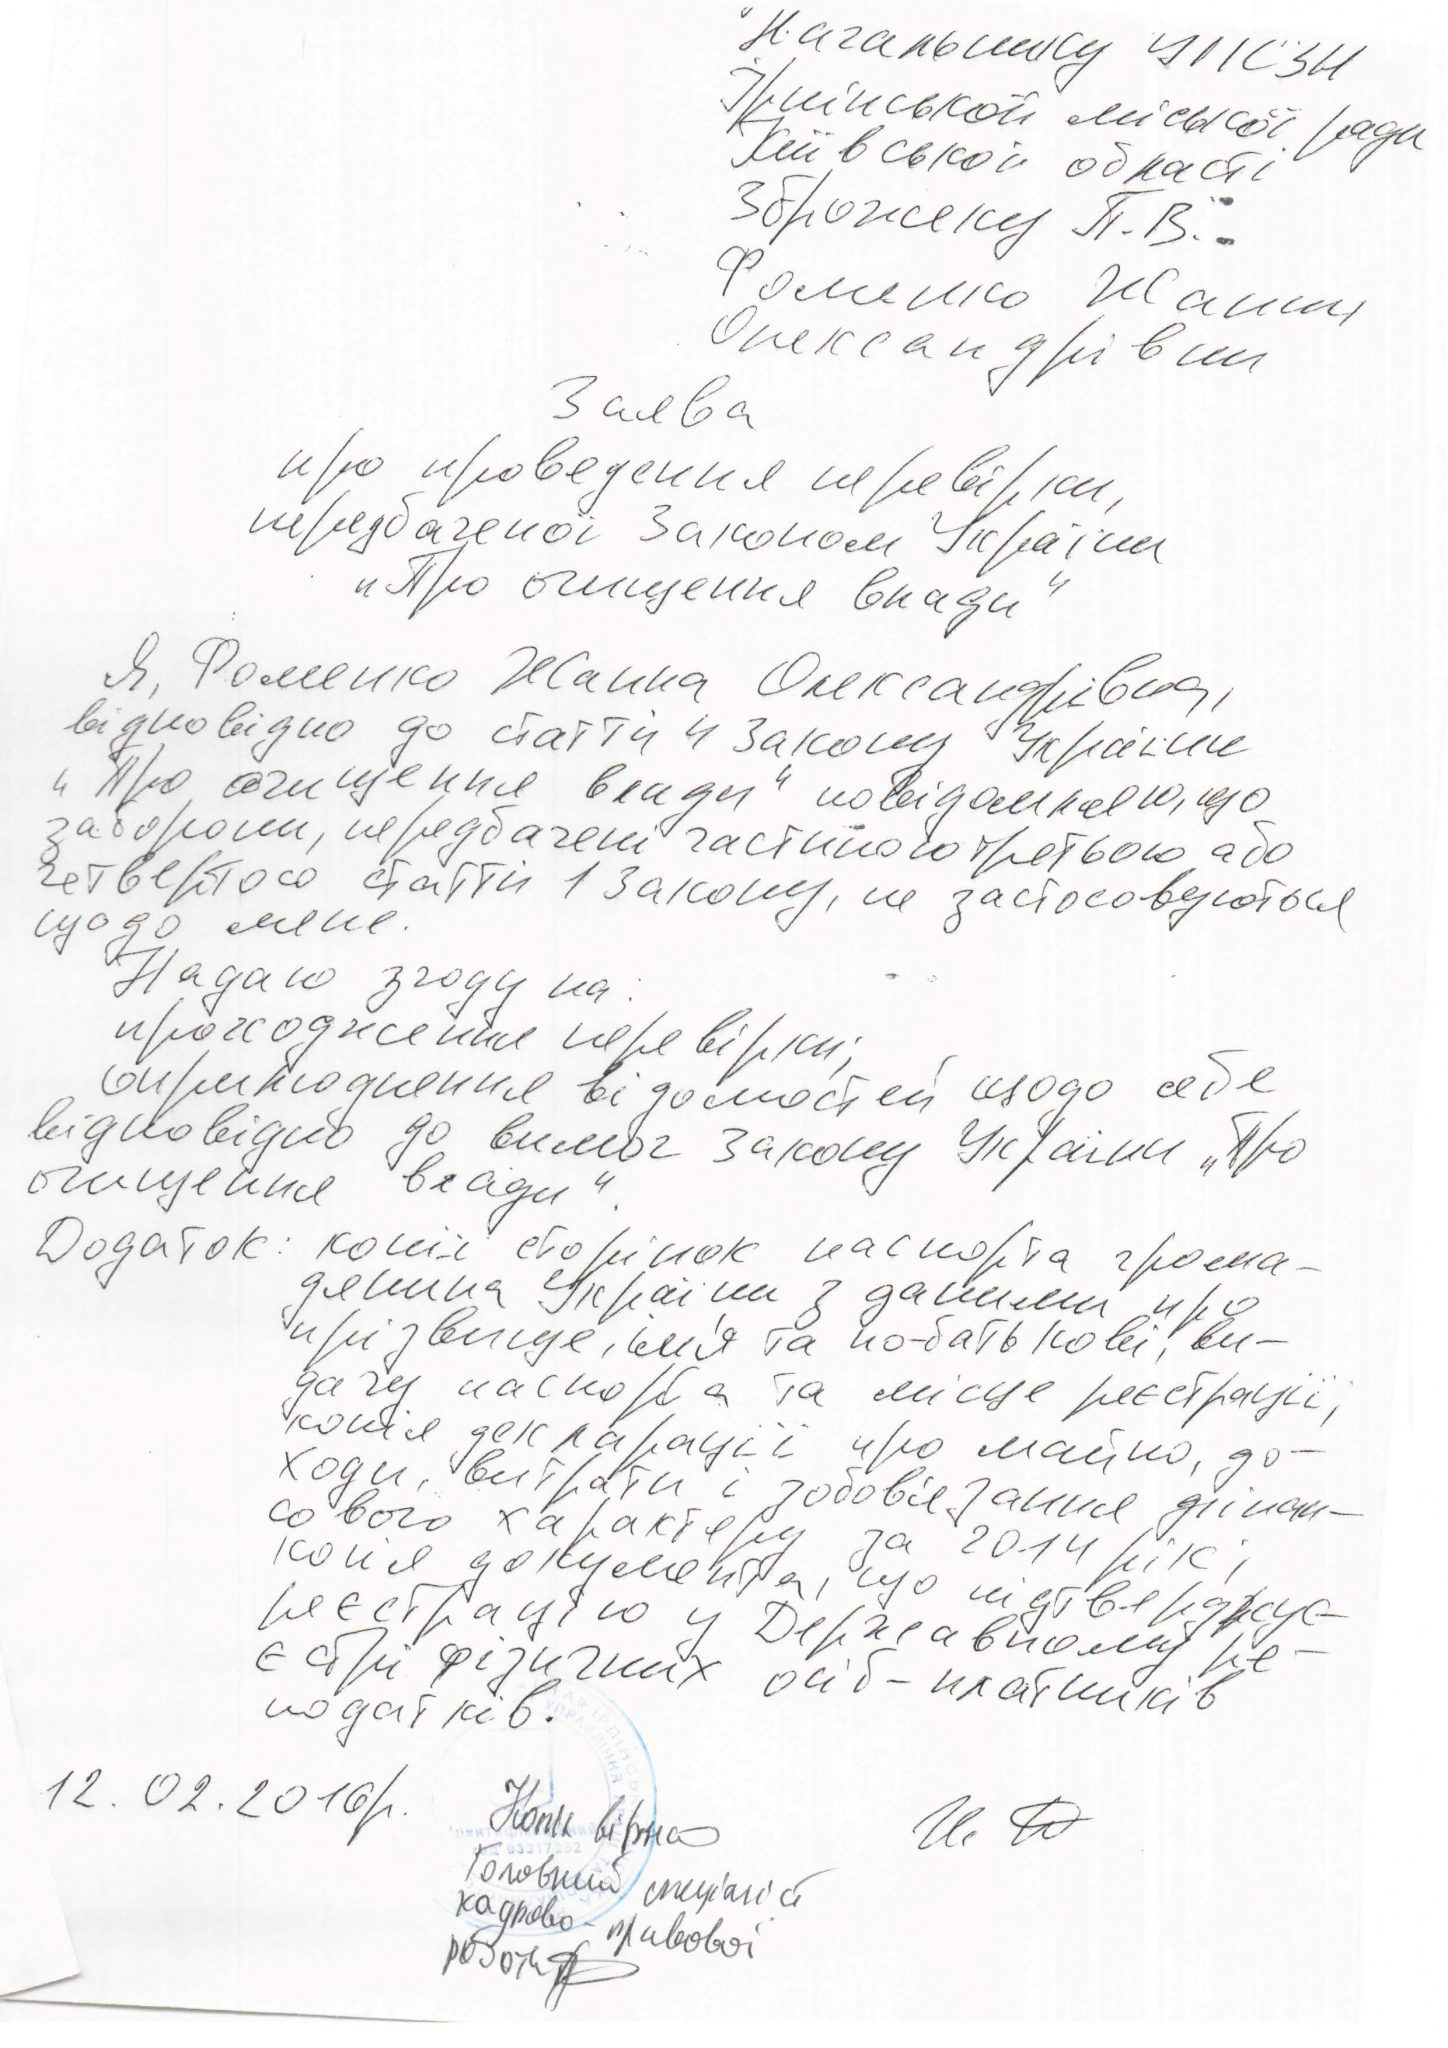 Начальнику УПСЗН
Ірпінської міської ради
Київської області
Зброжеку П.В.
Фоменко Жанни
Олександрівни
Заява
про проведення перевірки,
передбаченої Законом України
"Про очищення влади"
Я, Фоменко Жанна Олександрівна,
відповідно до статті 4 Закону України
"Про очищення влади" повідомляю, що
заборони, передбачені частиною третьою або
четвертою статті 1 Закону, не застосовуються
щодо мене.
Надаю згоду на:
проходження перевірки;
оприлюднення відомостей щодо себе
відповідно до вимог Закону України „Про
очищення влади".
Додаток: копії сторінок паспорта грома-
дянина України з даними про
прізвище, ім'я та по-батькові, ви-
дачу паспорта та місце реєстрації;
копія декларації про майно, до-
ходи, витрати і зобов'язання фінан-
сового характеру за 2014 рік;
копія документа, що підтверджує
реєстрацію у Державному ре-
єстрі фізичних осіб-платників
податків.
12.02.2016р.
Копія вірна
Головний спеціаліст
кадрово-правової
роботи
03317262